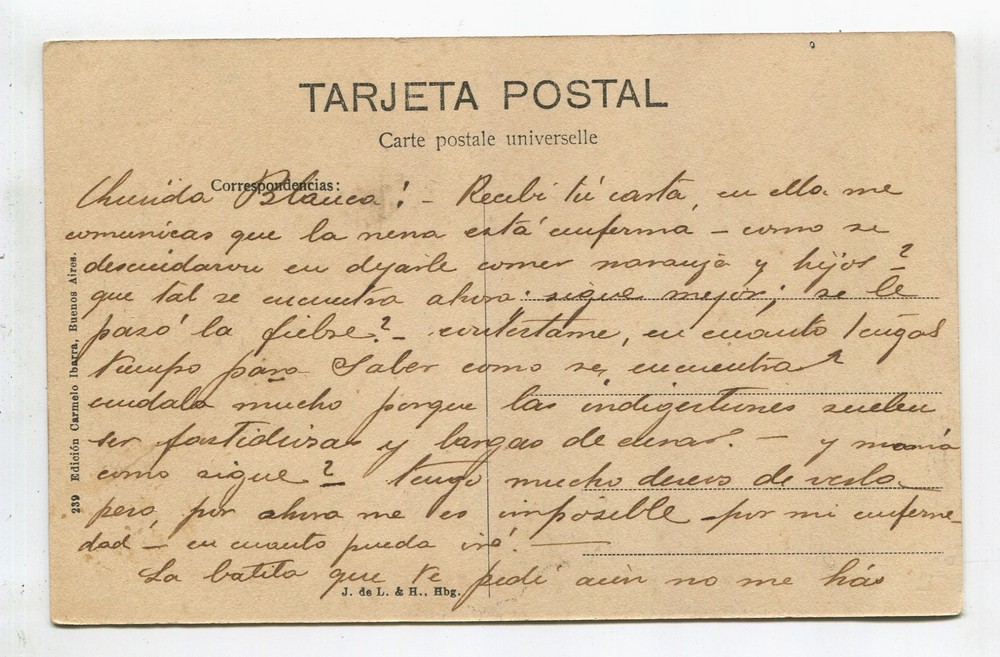 TARJETA POSTAL
Carte postale universelle
Correspondencias:
Blanca! - Recibi tú carta, en ella me
comunicas que la nena está enferma - como se
descuidaron en dejarle comer naranja y hijos?
que tal se encuentra ahora: sigue mejor; se le
pasó la fiebre? - contestame, en cuanto tengas
tiempo para Saber como se encuentra?
cuidala mucho porque las indigestiones suelen
ser fastidiosas y largas de curar. - y mamá
como sigue? tengo mucho deseos de verla
pero, por ahora me es imposible - por mi enferme-
dad - en cuanto pueda iré! -
La batita que te pedi aún no me hás
J. de L. & H., Hbg.
239 Edición Carmelo Ibarra, Buenos Aires.